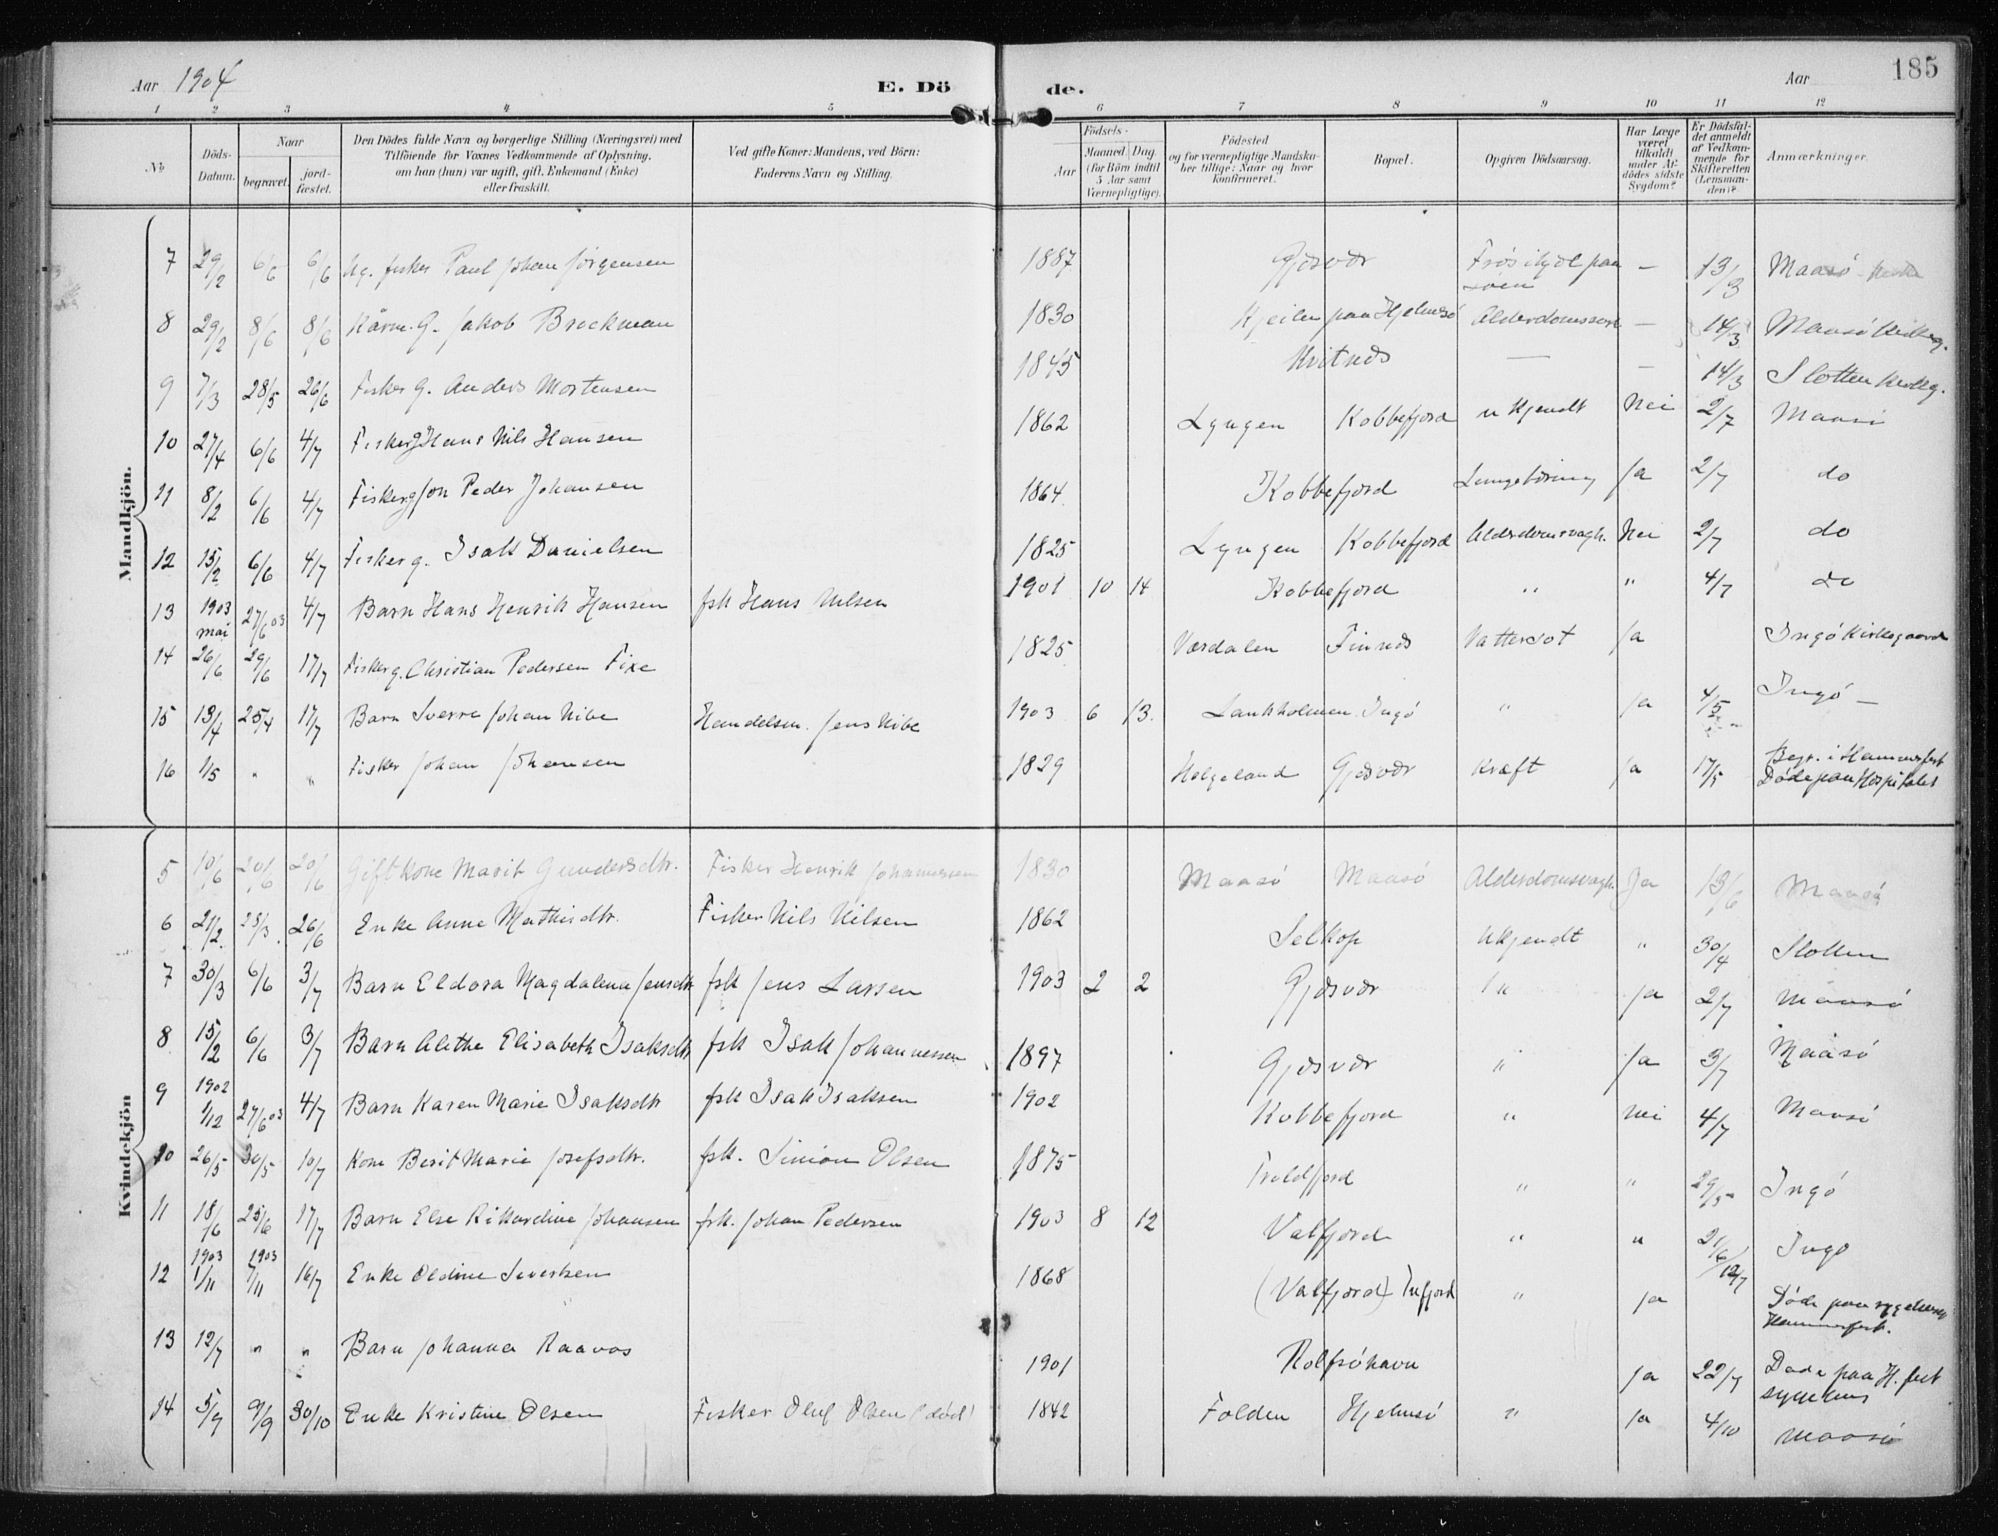 Aar 1904
E. Döde.
Aar
185
1 2 3 4 5 6 7 8 9 10 11 12
No
Döds-Datum.
Naar
begravet.
jordfæstet.
Den Dödes fulde Navn og borgerlige Stilling (Næringsvei) med
Tilföiende for Voxnes Vedkommende af Oplysning,
om han (hun) var ugift, gift, Enkemand (Enke)
eller fraskilt.
Ved gifte Koner: Mandens, ved Börn:
Faderens Navn og Stilling.
Födsels-
Aar
Maaned Dag
(for Börn indtil
5 Aar samt
Værnepligtige).
Födested
og for værnepligtige Mandskaber tillige: Naar og hvor
konfirmeret.
Bopæl.
Opgiven Dödsaarsag.
Har Læge
været
tilkaldt
under Afdödes sidste
Sygdom?
Er Dödsfaldet anmeldt
af Vedkommende for
Skifteretten
(Lensmanden)?
Anmærkninger.
Mandkjön.
7 29/2 6/6 6/6 Ug. fisker Paul Johan Jørgensen 1887 Gjesvær Frøs ihjel paa søen — 13/3 Maasö
8 29/2 8/6 8/6 G. Jakob Brockman 1830 Kjeilen paa Hjelmsö Alderdomssvaghed — 14/3 Maasö
9 7/3 28/5 26/6 Fisker G. Anders Mortensen 1845 Kvitnes — — 14/3 Slotten
10 27/4 6/6 4/7 Fisker g Hans Nils Hansen 1862 Lyngen Kobbefjord Ukjendt Nei 2/7 Maasö
11 8/2 6/6 4/7 Fisker g Jon Peder Johansen 1864 Kobbefjord Lungetæring Ja 2/7 do
12 15/2 6/6 4/7 Fisker g. Isak Danielsen 1825 Lyngen Kobbefjord Alderdomsvagh. Nei 2/7 do
13 1903 mai 27/6 03 4/7 Barn Hans Henrik Hansen fsk Hans Nilsen 1901 10 14 Kobbefjord " " 4/7 do
14 26/6 29/6 17/7 Fisker g. Christian Pedersen Fixe 1825 Værdalen Finnes Vattersot Ja Ingö Kirkegaard
15 13/4 25/4 17/7 Barn Sverre Johan Nibe Handelsm. Jens Nibe 1903 6 13. Lankholmen Ingö " Ja 4/5 Ingö —
16 1/5 " " Fisker Johan Johansen 1829 Helgeland Gjesvær Kræft Ja 17/5 Begr. i Hammerfest
Döde paa Hospitalet
Kvindekjön
5 10/6 20/6 20/6 Gift Kone Marit Gundersdtr. Fisker Henrik Johannessen 1830 Maasö Maasö Alderdomsvagh. Ja 13/6 Maasö
6 21/2 25/3 26/6 Enke Anne Mathisdtr. Fisker Nils Nilsen 1862 Selkop Ukjendt " 30/4 Slotten
7 30/3 6/6 3/7 Barn Eldora Magdalena Jensdtr fsk Jens Larsen 1903 2 2 Gjesvær " Ja 2/7 Maasö
8 15/2 6/6 3/7 Barn Alethe Elisabeth Isaksdtr fsk Isak Johannessen 1897 Gjesvær " Ja 3/7 Maasö
9 1902 1/12 27/6 03 4/7 Barn Karen Marie Isaksdtr fsk Isak Isaksen 1902 Kobbefjord " Nei 4/7 Maasö
10 26/5 30/5 10/7 Kone Berit Marie Josefsdtr. fsk. Simion Olsen 1875 Troldfjord " " 29/5 Ingö
11 18/6 25/6 17/7 Barn Else Rikardine Johansen fsk. Johan Pedersen 1903 8 12 Valfjord " " 21/6 Ingö
12 1903 1/11 1903 7/11 16/7 Enke Oldine Sivertsen 1868 (Valfjord) Tufjord " Ja 12/7 Döde paa sygehuset
Hammerfest.
13 12/7 " " Barn Johanna Raavos 1901 Rolfsöhavn Ja 22/7 Døde paa H.fest
sygehus
14 5/9 9/9 30/10 Enke Kristine Olsen Fisker Oluf Olsen (död) 1842 Folden Hjelmsö " Ja 4/10 Maasö